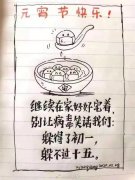 元宵节快乐！
继续在家好好宅着，
别让病毒笑话我们：
躲得了初一，
躲不过十五。